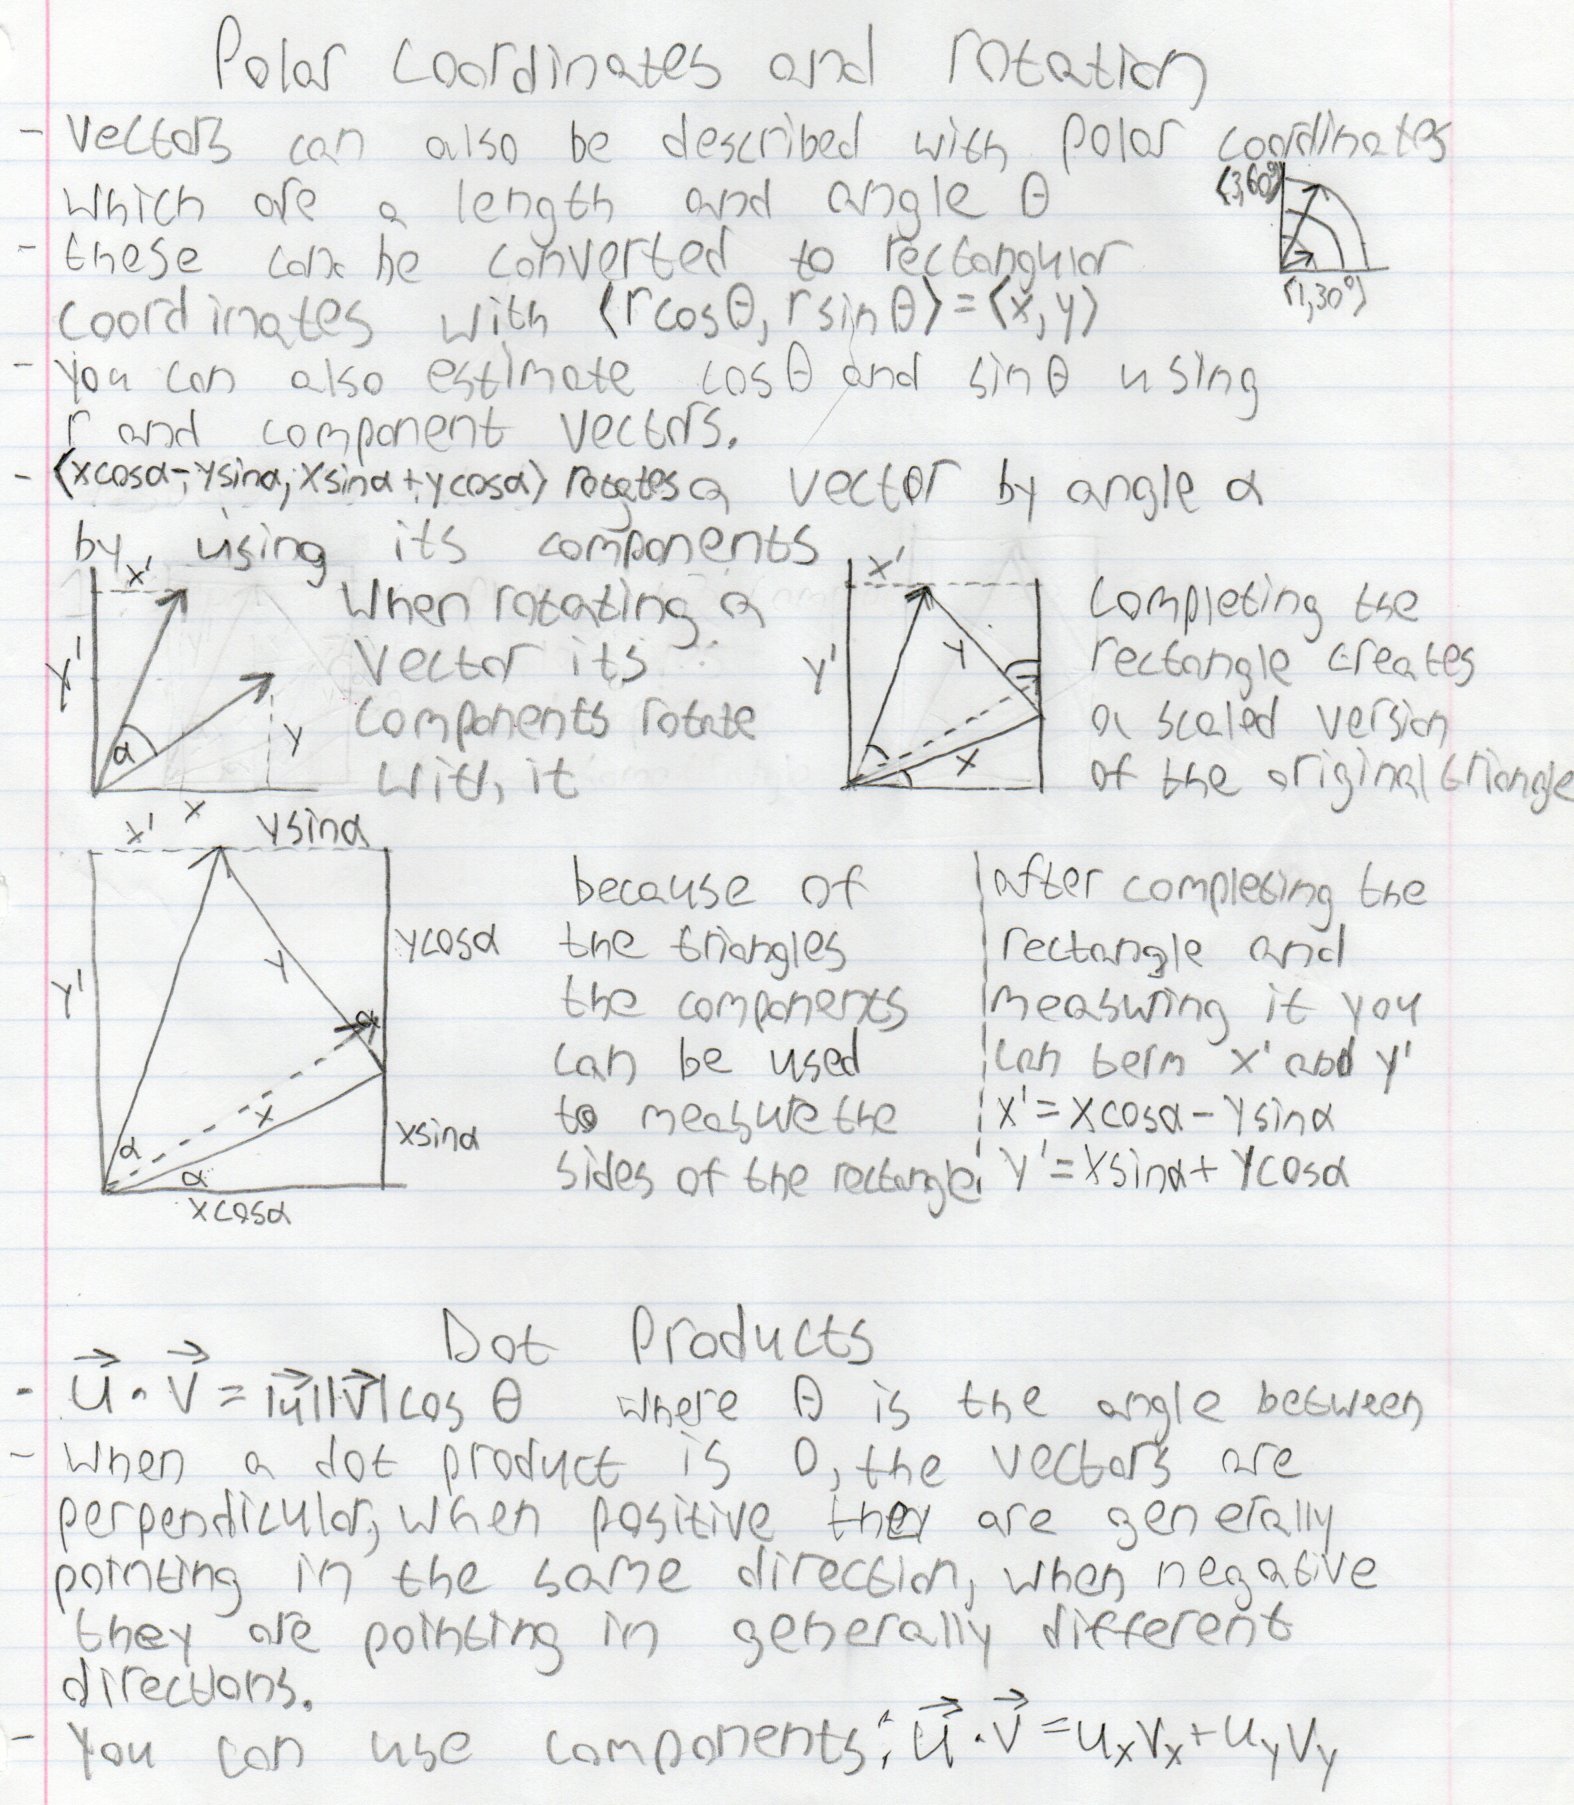 Polar Coordinates and rotation
- Vectors can also be described with polar coordinates
which are a length and angle θ
⟨3,60°⟩
⟨1,30°⟩
- these can be converted to rectangular
coordinates with ⟨r cosθ, r sinθ⟩=⟨x,y⟩
- you can also estimate cosθ and sinθ using
r and component vectors.
- ⟨xcosα-ysinα, xsinα+ycosα⟩ rotates a vector by angle α
by using its components
x'
y'
α
y
x
When rotating a
vector its
components rotate
with it
x'
y'
y
x
Completing the
rectangle creates
a scaled version
of the original triangle
x'
ysinα
y'
y
ycosα
α
x
xsinα
α
α
xcosα
because of
the triangles
the components
can be used
to measure the
sides of the rectangle
after completing the
rectangle and
measuring it you
can x' and y'
x'=xcosα-ysinα
y'=xsinα+ycosα
Dot Products
- u⃗·v⃗=|u⃗||v⃗|cos θ where θ is the angle between
- When a dot product is 0, the vectors are
perpendicular, when positive they are generally
pointing in the same direction, when negative
they are pointing in generally different
directions.
- You can use components: u⃗·v⃗=uₓvₓ+u_yv_y